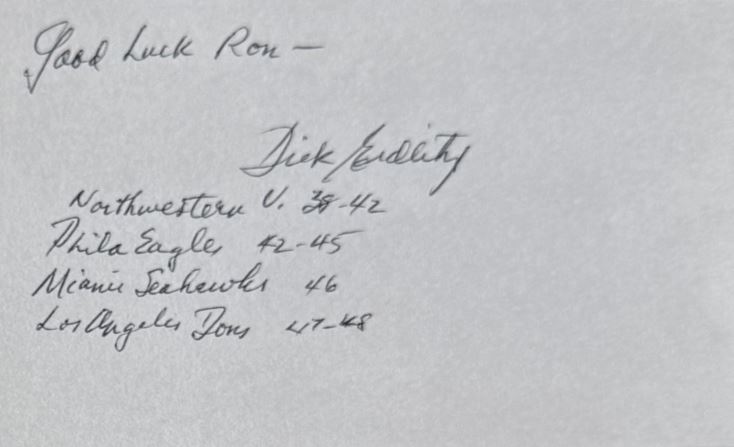 Good Luck Ron —
Dick Erdlitz
Northwestern U. 39-42
Phila Eagles 42-45
Miami Seahawks 46
Los Angeles Dons 47-48